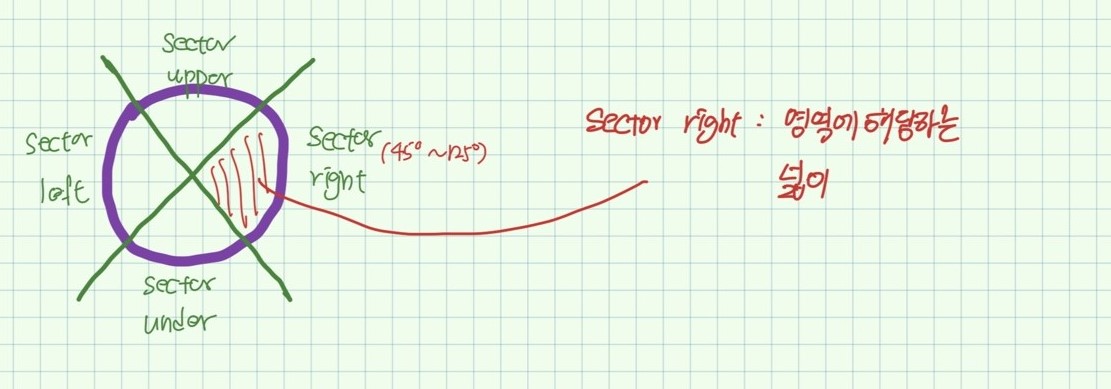 Sector
upper
Sector
left
Sector
right
(45° ~125°)
Sector
under
Sector right : 영역에 해당하는
넓이